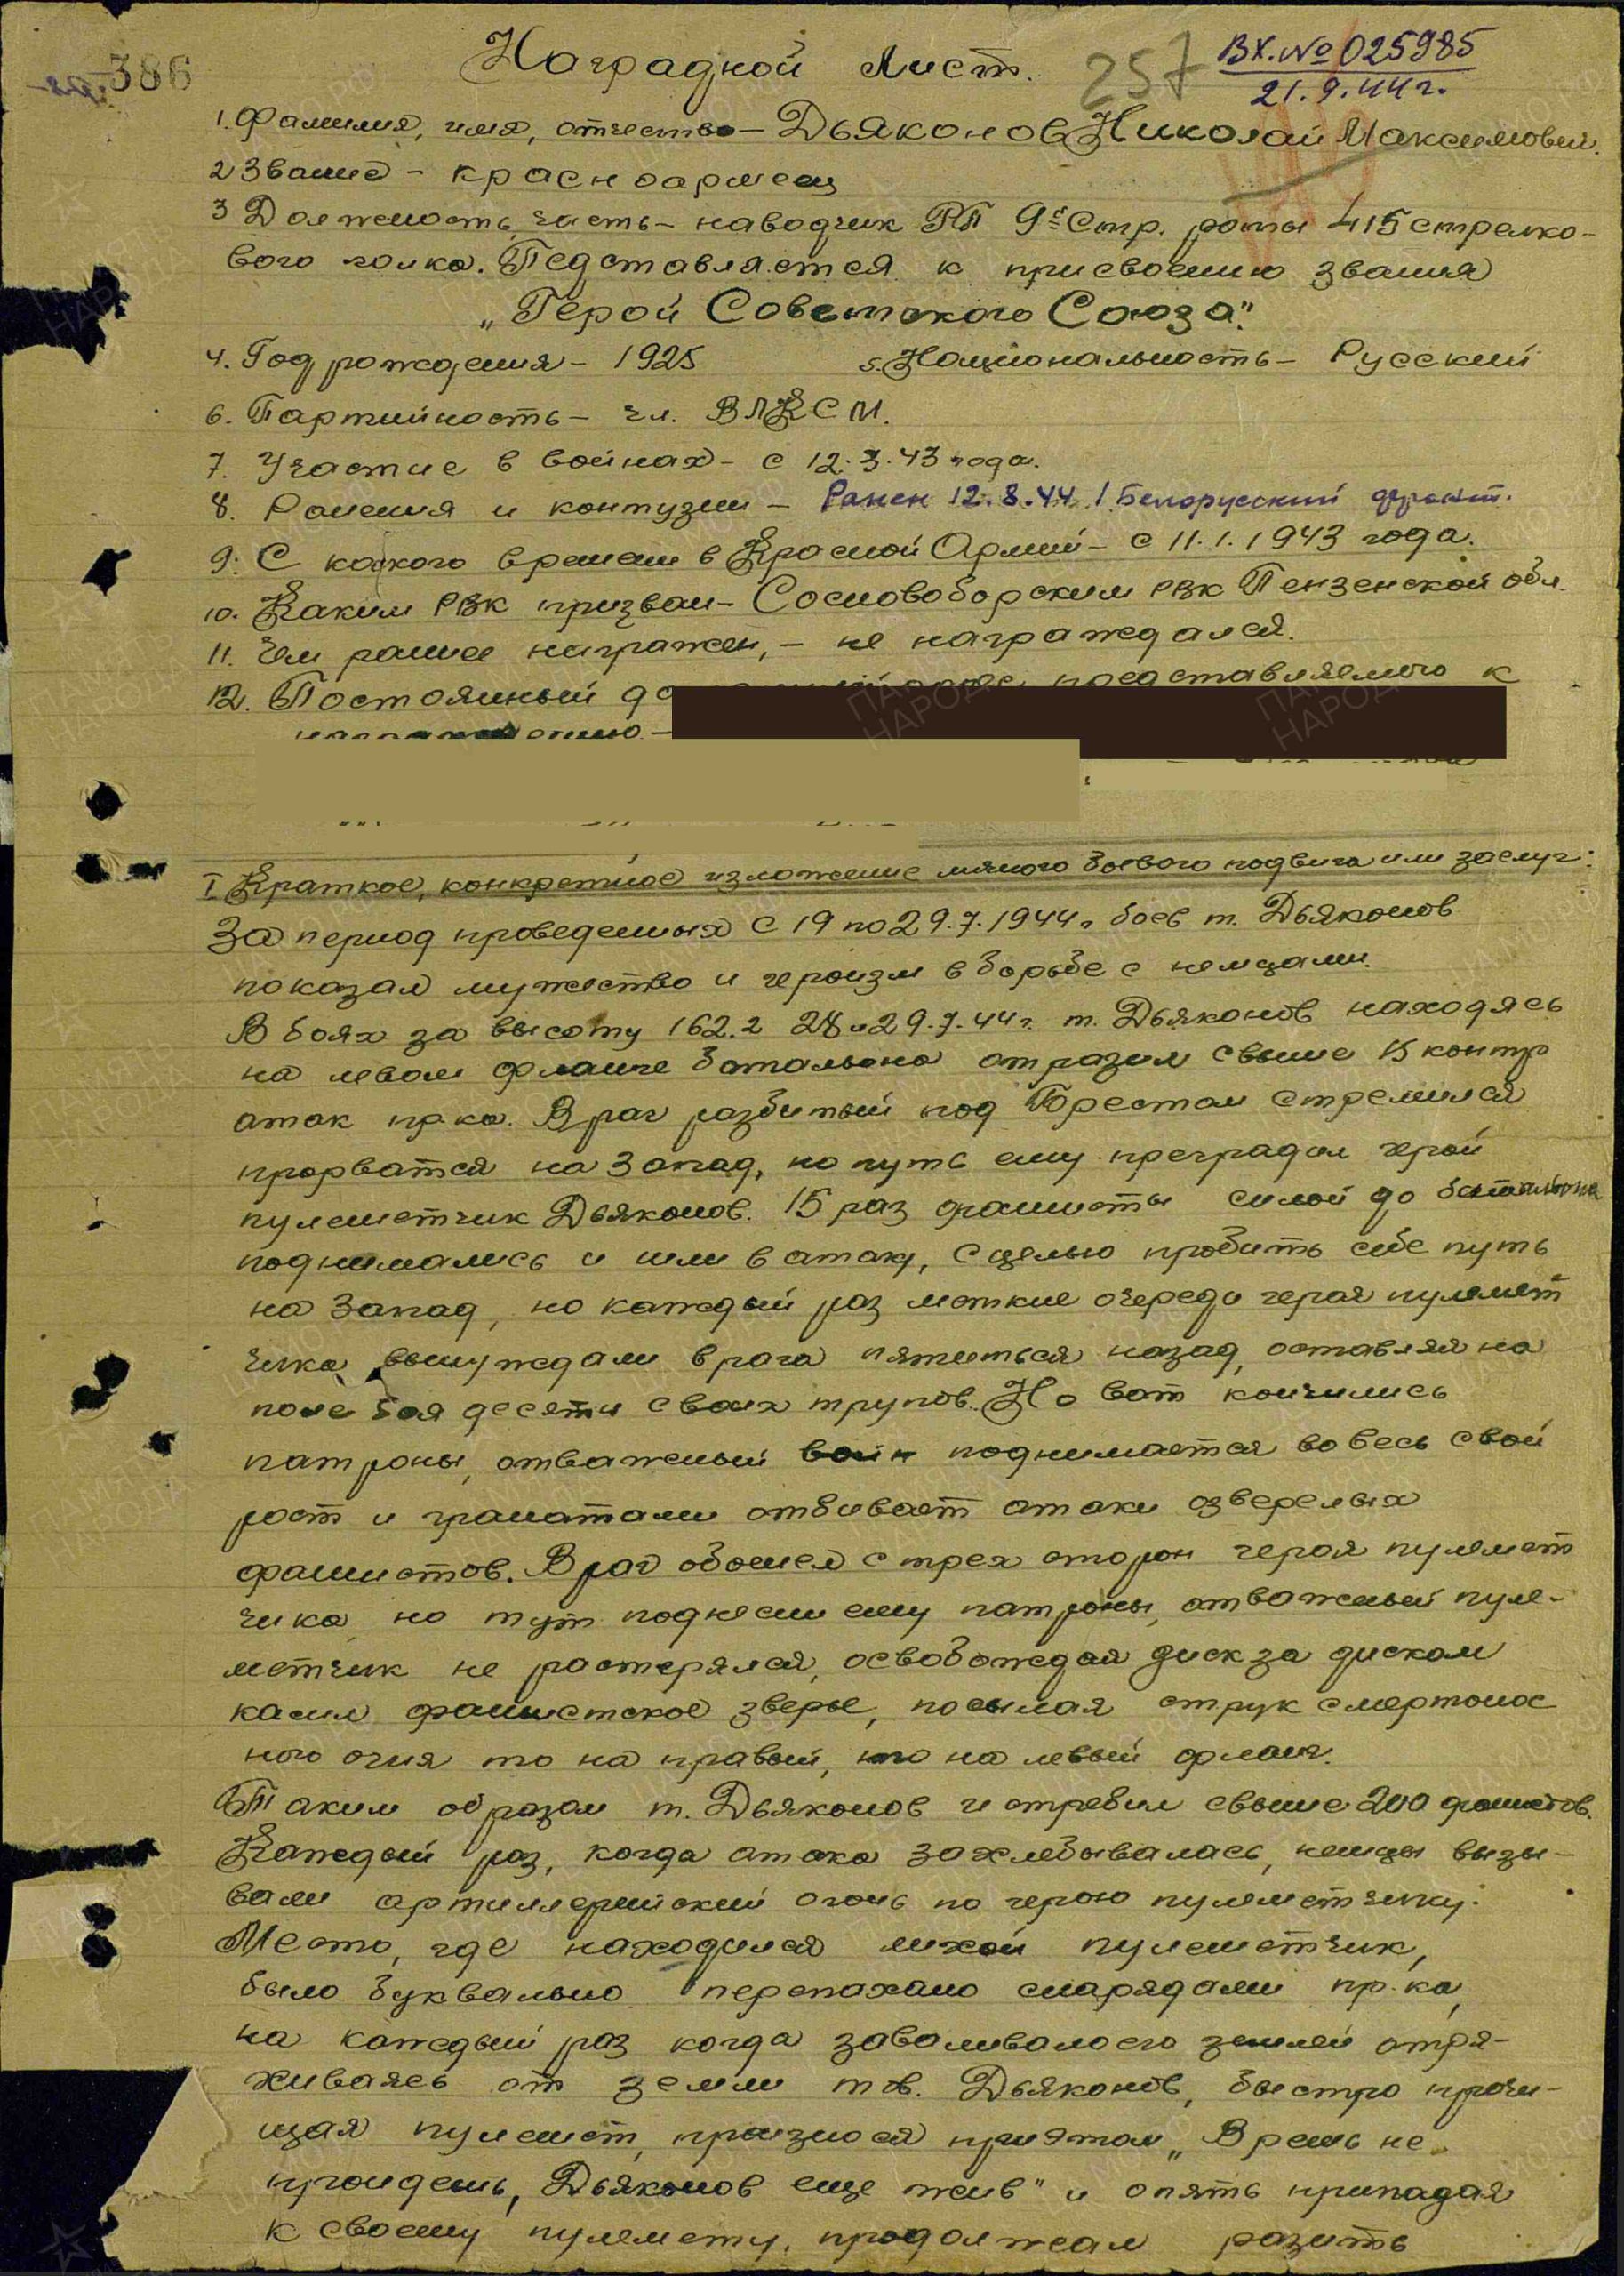 386
Наградной Лист.
257
ВХ. № 025985
21.9.44 г.
1. Фамилия, имя, отчество – Дьяконов Николай Максимович.
2 Звание – красноармеец
3 Должность, часть – наводчик РП 9й Стр. роты 415 стрелко-
вого полка. Педставляется к присвоению звания
„Герой Советского Союза".
4. Год рождения – 1925
5. Национальность – Русский
6. Партийность – чл. ВЛКСМ.
7. Участие в войнах – с 12.3.43 года.
8. Ранения и контузии – Ранен 12.8.44. 1 Белорусский фронт.
9. С какого времени в Красной Армии – с 11.1.1943 года.
10. Каким РВК призван – Сосновоборским РВК Пензенской обл.
11. Чем ранее награжен, – не награждался.
12. Постоянный представляемого к
I Краткое, конкретное изложение личного боевого подвига или заслуг:
За период проведенных с 19 по 29.7.1944 г. боев т. Дьяконов
показал мужество и героизм в борьбе с немцами.
В боях за высоту 162.2 28 и 29.7.44 г. т. Дьяконов находясь
на левом фланге батальона отразил свыше 15 контр
атак пр-ка. Враг разбитый под Брестом стремился
прорватся на Запад, но путь ему преградил герой
пулеметчик Дьяконов. 15 раз фашисты силой до батальона
поднимались и шли в атаку, с целью пробить себе путь
на Запад, но каждый раз меткие очереди героя пулемет
чика вынуждали врага пятиться назад, оставляя на
поле боя десятки своих трупов. Но вот кончились
патроны, отважный воин поднимается во весь свой
рост и гранатами отбивает атаки озверелых
фашистов. Враг обошел с трех сторон героя пулемет
чика, но тут поднесли ему патроны, отважный пуле-
метчик не растерялся, освобождая диск за диском
косил фашистское зверье, посылая струк смертонос
ного огня то на правый, то на левый фланг.
Таким образом т. Дьяконов истребил свыше 200 фашистов.
Каждый раз, когда атака захлебывалась, немцы вызы-
вали артиллерийский огонь по герою пулеметчику.
Место, где находился лихой пулеметчик,
было буквально перепахано снарядами пр-ка,
на каждый раз когда заваливало его землей отря-
хиваясь от земли тов. Дьяконов, быстро прочи-
щая пулемет, произнося притом „Врешь не
пройдешь, Дьяконов еще жив" и опять припадая
к своему пулемету, продолжал разить